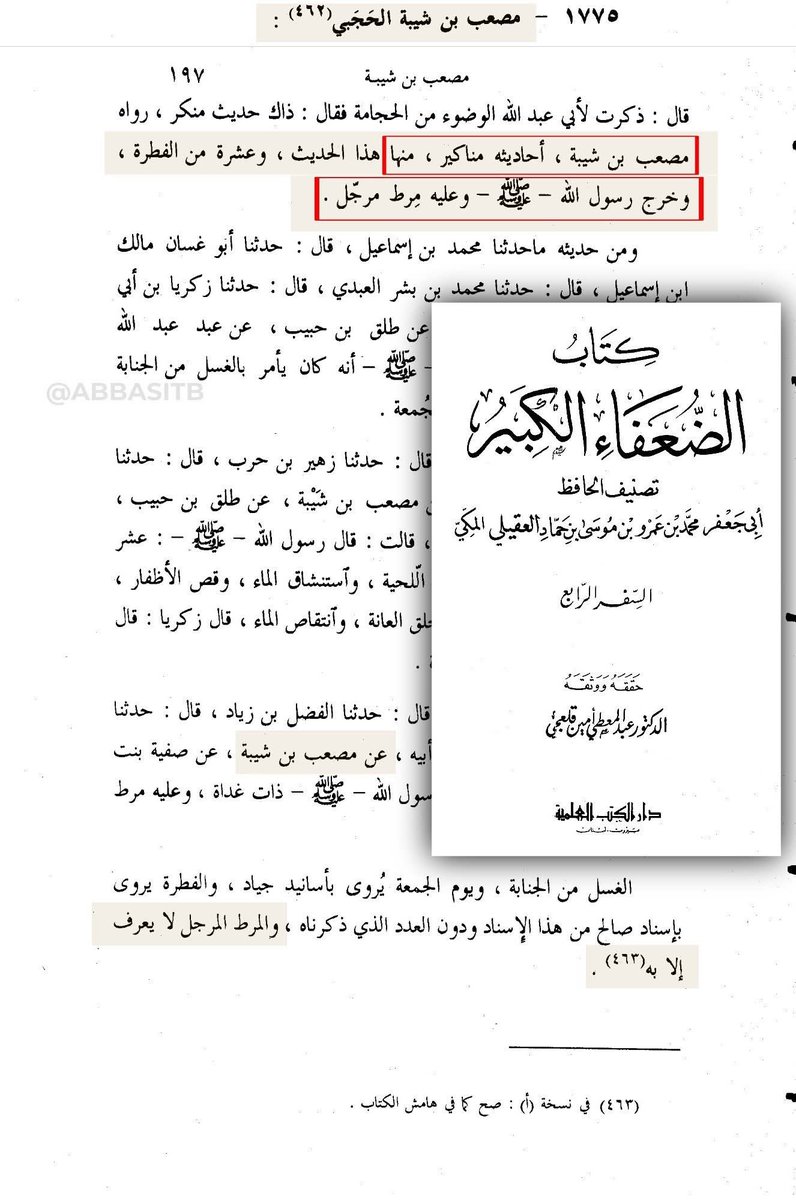 ١٧٧٥ – مصعب بن شيبة الحَجَبي(٤٦٢) :
مصعب بن شيبة ١٩٧
قال : ذكرت لأبي عبد الله الوضوء من الحجامة فقال : ذاك حديث منكر ، رواه
مصعب بن شيبة ، أحاديثه مناكير ، منها هذا الحديث ، وعشرة من الفطرة ،
وخرج رسول الله – ﷺ – وعليه مِرط مرجّل .
ومن حديثه ماحدثنا محمد بن إسماعيل ، قال : حدثنا أبو غسان مالك
ابن إسماعيل ، قال : حدثنا محمد بن بشر العبدي ، قال : حدثنا زكريا بن أبي
عن طلق بن حبيب ، عن عبد عبد الله
– ﷺ – أنه كان يأمر بالغسل من الجنابة
جُمعة .
@ABBASITB
قال : حدثنا زهير بن حرب ، قال : حدثنا
مصعب بن شَيْبة ، عن طلق بن حبيب ،
، قالت : قال رسول الله – ﷺ – : عشر
اللّحية ، وآستنشاق الماء ، وقص الأظفار ،
حلق العانة ، وآنتقاص الماء ، قال زكريا : قال
ة .
قال : حدثنا الفضل بن زياد ، قال : حدثنا
أبيه ، عن مصعب بن شيبة ، عن صفية بنت
سول الله – ﷺ – ذات غداة ، وعليه مرط
الغسل من الجنابة ، ويوم الجمعة يُروى بأسانيد جياد ، والفطرة يروى
بإسناد صالح من هذا الإسناد ودون العدد الذي ذكرناه ، والمرط المرجل لا يعرف
إلا به(٤٦٣) .
(٤٦٣) في نسخة (أ) : صح كما في هامش الكتاب .
كِتَابُ
الضُّعَفَاءِ الكَبِيرُ
تصنيف الحافظ
أبي جَعْفر محمّد بن عَمرو بن موسى بن حمّاد العقيلي المكيّ
السِّفر الرّابع
حَقَّقَهُ وَوَثَّقَهُ
الدكتور عبد المعطي أمين قلعجي
دار الكتب العلمية
بيروت - لبنان